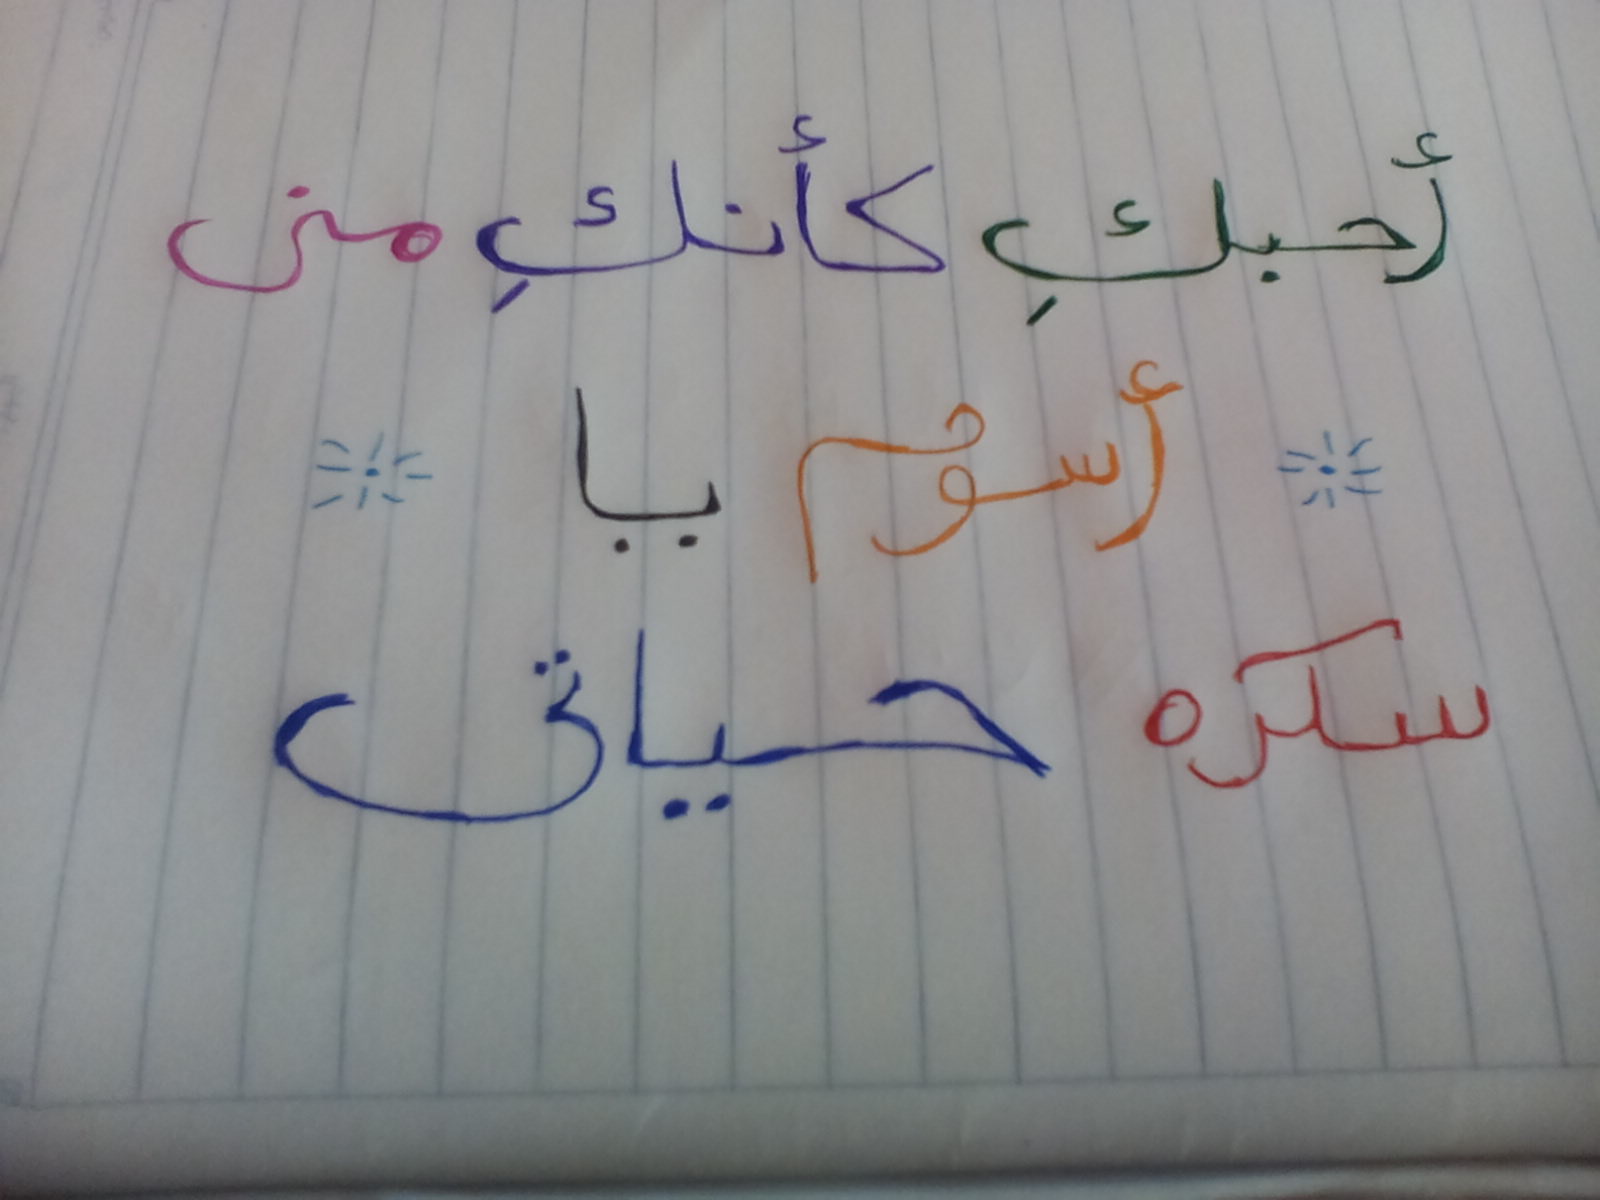 أحبكِ كأنكِ منى
أسوُم يا
سكره حياتى